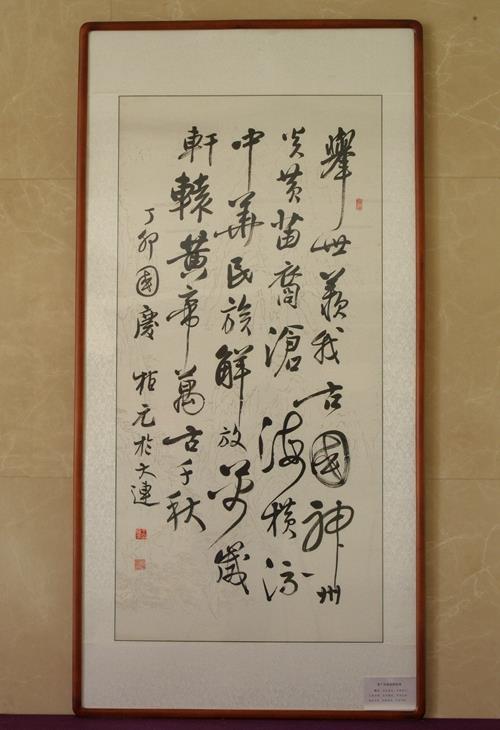 舉世羨我古國神州
炎黄苗裔滄海横流
中華民族解放萬歲
軒轅黄帝萬古千秋
丁卯國慶 柏元於大連